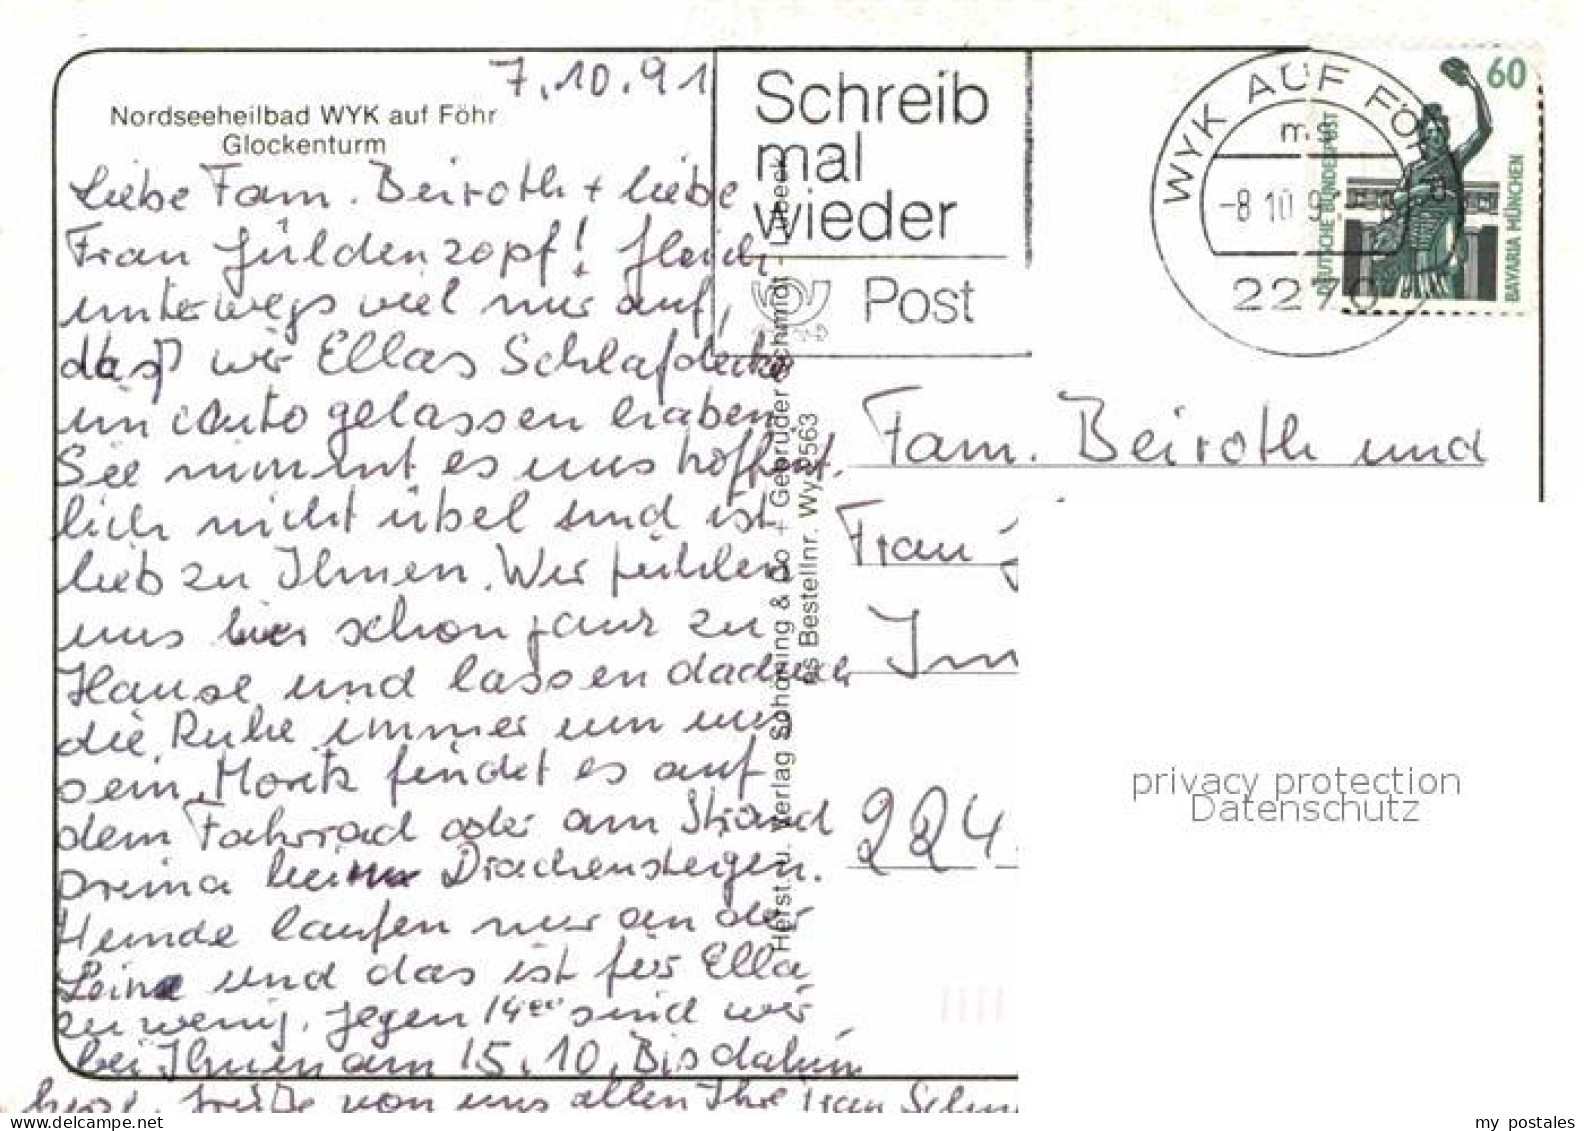 7.10.91
Nordseeheilbad WYK auf Föhr
Glockenturm
Liebe Fam. Beiroth + liebe
Frau Güldenzopf! Gleich
unterwegs viel mir auf,
daß wir Ellas Schlafdecke
im Auto gelassen haben
Sie nimmt es uns hoffent-
lich nicht übel und ist
lieb zu Ihnen. Wir fühlen
uns hier schon ganz zu
Hause und lassen dadurch
die Ruhe immer um uns
sein. Moritz findet es auf
dem Fahrrad oder am Strand
prima beim Drachensteigen.
Hunde laufen nur an der
Leine und das ist für Ella
zu wenig. Gegen 14 00 sind wir
bei Ihnen am 15.10. Bis dahin
herzl. Grüße von uns allen Ihre Frau
Schreib
mal
wieder
Post
WYK AUF FÖHR
-8 10 9
2270
60
DEUTSCHE BUNDESPOST
BAVARIA MÜNCHEN
Herst. u. Verlag Schöning & Co + Gebrüder Schmidt - Lübeck
Bestellnr. Wy 2563
Fam. Beiroth und
Frau
224
privacy protection
Datenschutz
my postales
delcampe.net